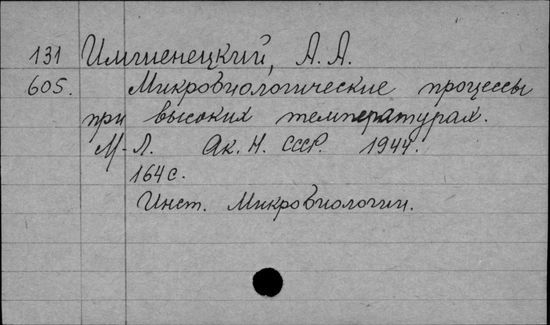 131 Имшенецкий, А. А.
605. Микробиологические процессы
при высоких температурах.
М-Л. Ак. Н. СССР. 1944.
164 с.
Инст. Микробиологии.